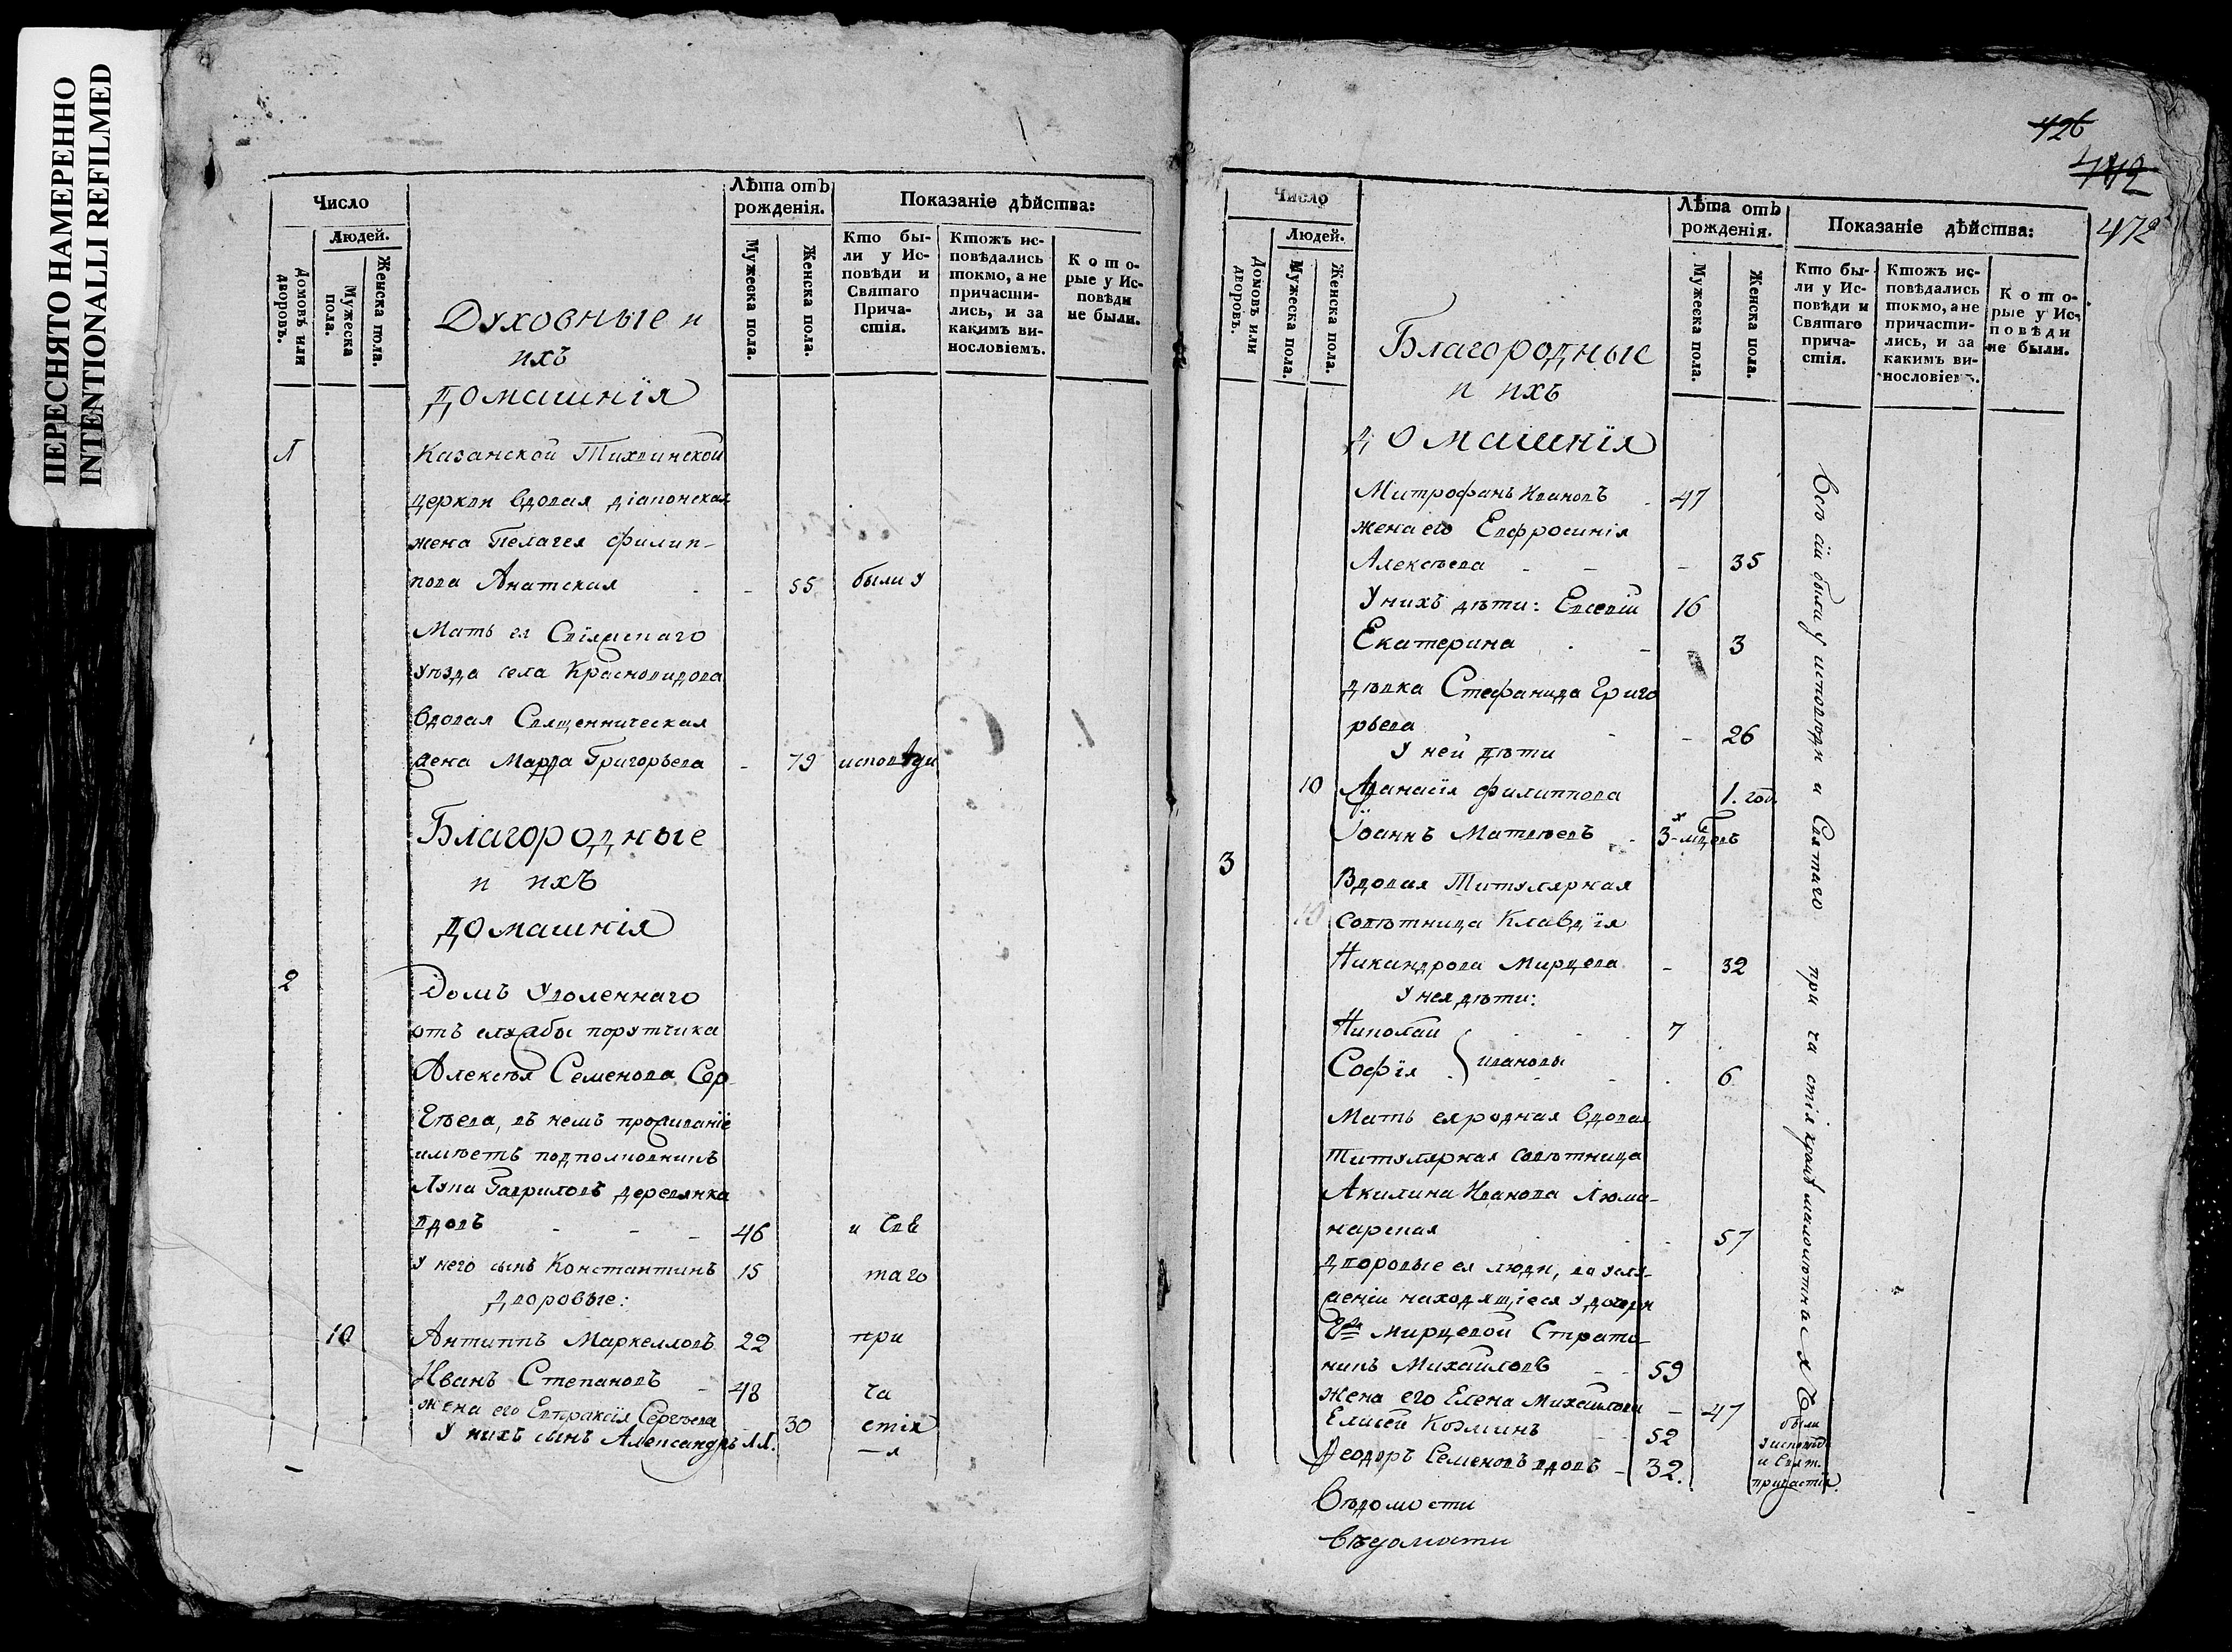 ПЕРЕСНЯТО НАМЕРЕННО
INTENTIONALLI REFILMED
Число
Людей.
Домовъ или дворовъ.
Мужеска пола.
Женска пола.
Духовные и
ихъ
домашнія
Лѣта отъ рожденія.
Мужеска пола.
Женска пола.
Показаніе дѣйства:
Кто бы-
ли у Ис-
повѣди и
Святаго
Прича-
стія.
Ктожъ ис-
повѣдались
токмо, а не
причасти-
лись, и за
какимъ ви-
нословіемъ.
Кото-
рые у Ис-
повѣди
не были.
1 Казанской Тихвинской
церкви вдовая діаконская
жена Пелагея Филип-
пова Анатская - 55 были у
Мать ея Свіяжскаго
уѣзда села Красновидова
вдовая Священническая
жена Марѳа Григорьева - 79 исповѣди
Благородные
и ихъ
домашнія
2 Домъ Уволеннаго
отъ службы порутчика
Алексѣя Семенова Сер-
гѣева, въ немъ проживаніе
имѣетъ подполковникъ
Лука Гавриловъ деревянка
вдовъ - - - 46 и Свя
У него сынъ Константинъ 15 таго
Дворовые:
10 Антипъ Маркелловъ 22 при
Иванъ Степановъ - 48 ча
жена его Евпраксія Сергѣева 30 стія
У нихъ сынъ Александръ 11. —я
426
442
472
Число
Людей.
Домовъ или дворовъ.
Мужеска пола.
Женска пола.
Благородные
и ихъ
домашнія
Лѣта отъ рожденія.
Мужеска пола.
Женска пола.
Показаніе дѣйства:
Кто бы-
ли у Ис-
повѣди и
Святаго
прича-
стія.
Ктожъ ис-
повѣдались
токмо, а не
причасти-
лись, и за
какимъ ви-
нословіемъ.
Кото-
рые у Ис-
повѣди
не были.
Митрофанъ Ивановъ - 47
жена его Евфросинія
Алексѣева - - - 35
У нихъ дѣти: Евсевій 16
Екатерина - - 3
дѣвка Стефанида Григо
рьева - - 26
У ней дѣти
10 Аѳанасія Филиппова 1. год.
Іоаннъ Матвѣевъ - 3-х мцовъ
3 Вдовая Титулярная
10 совѣтница Клавдія
Никандрова Мирцева - 32
У нея дѣти:
Николай 7
Софія } Ивановы 6
Мать ея родная вдовая
титулярная совѣтница
Акилина Иванова Люма-
нарская - 57
дворовые ея люди, во услу-
женіи находящіеся у дочери
Мирцевой Страто-
никъ Михайловъ - - 59
жена его Елена Михайлова - 47
Елисей Козминъ - - 52
Ѳеодоръ Семеновъ вдовъ - 32.
Всѣ сіи были у исповѣди и Святаго при ча стія кромѣ малолѣтнихъ
были
у исповѣд.
и Свят.
причастія.
Вѣдомости
вѣдомости